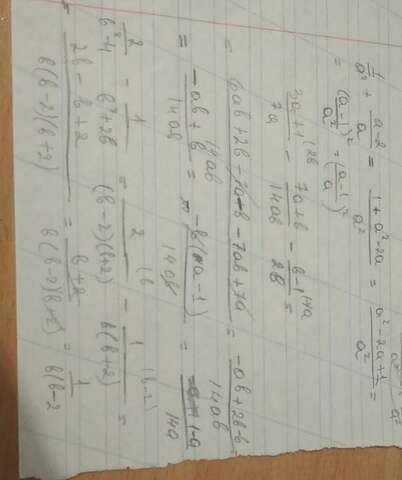 1/a² + (a-2)/a = (1+a²-2a)/a² = (a²-2a+1)/a² =
= (a-1)²/a² = ((a-1)/a)²
(3a+1)/7a (2b - (7a+b)/14ab - (b-1)/2b (7a =
= (6ab+2b-7a-b-7ab+7a)/14ab = (-ab+2b-b)/14ab =
= (-ab+b)/14ab = -b(a-1)/14ab = (1-a)/14a
2/(b²-4) - 1/(b²+2b) = 2/((b-2)(b+2)) (b - 1/(b(b+2)) (b-2) =
= (2b-b+2)/(b(b-2)(b+2)) = (b+2)/(b(b-2)(b+2)) = 1/(b(b-2